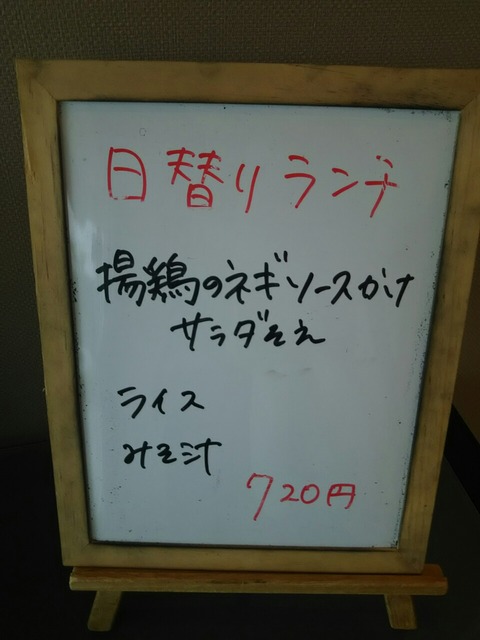 日替りランチ
揚鶏のネギソースかけ
サラダそえ
ライス
みそ汁
720円